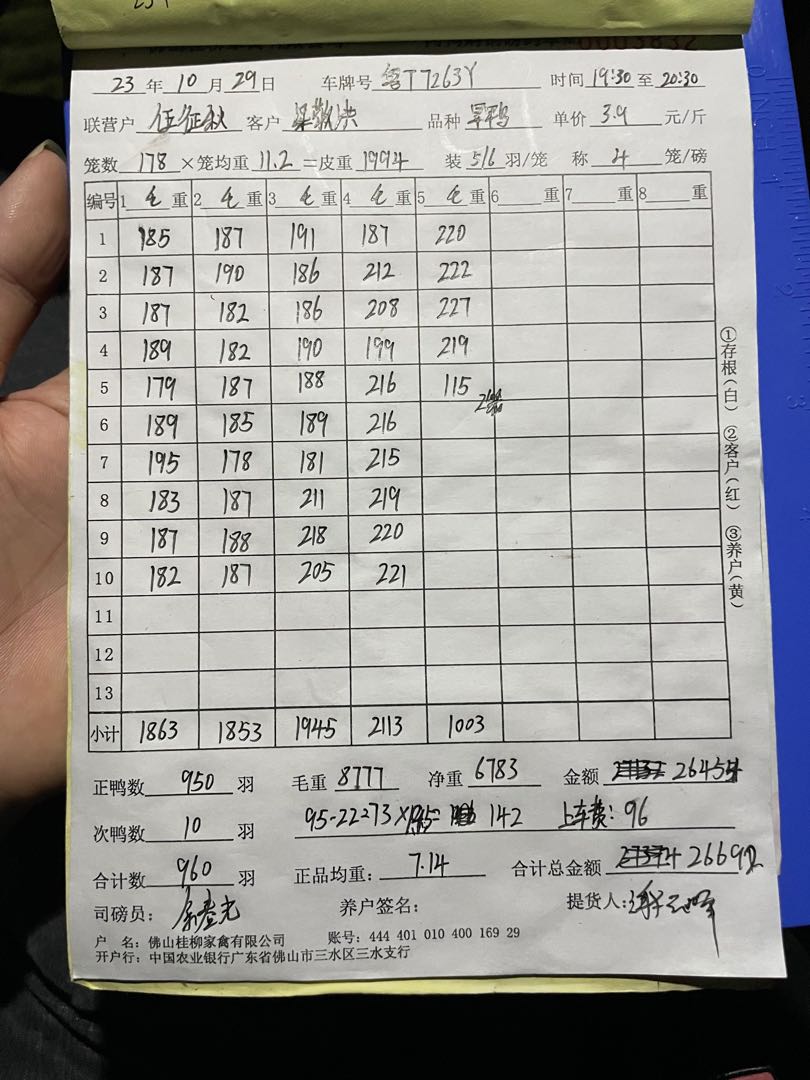 23 年 10 月 29 日 车牌号 粤T7263Y 时间 19:30 至 20:30
联营户 伍征秋 客户 梁敬洪 品种 旱鸭 单价 3.9 元/斤
笼数 178 ×笼均重 11.2 =皮重 1994 装 5/6 羽/笼 称 4 笼/磅
编号 1 毛 重 2 毛 重 3 毛 重 4 毛 重 5 毛 重 6 重 7 重 8 重
1 185 187 191 187 220
2 187 190 186 212 222
3 187 182 186 208 227
4 189 182 190 199 219
5 179 187 188 216 115
6 189 185 189 216
7 195 178 181 215
8 183 187 211 219
9 187 188 218 220
10 182 187 205 221
11
12
13
小计 1863 1853 1945 2113 1003
正鸭数 950 羽 毛重 8777 净重 6783 金额 26454
次鸭数 10 羽 95-22=73× 142 上车费: 96
合计数 960 羽 正品均重: 7.14 合计总金额 26692
司磅员: 养户签名: 提货人:
户 名: 佛山桂柳家禽有限公司 账号: 444 401 010 400 169 29
开户行: 中国农业银行广东省佛山市三水区三水支行
①存根(白) ②客户(红) ③养户(黄)